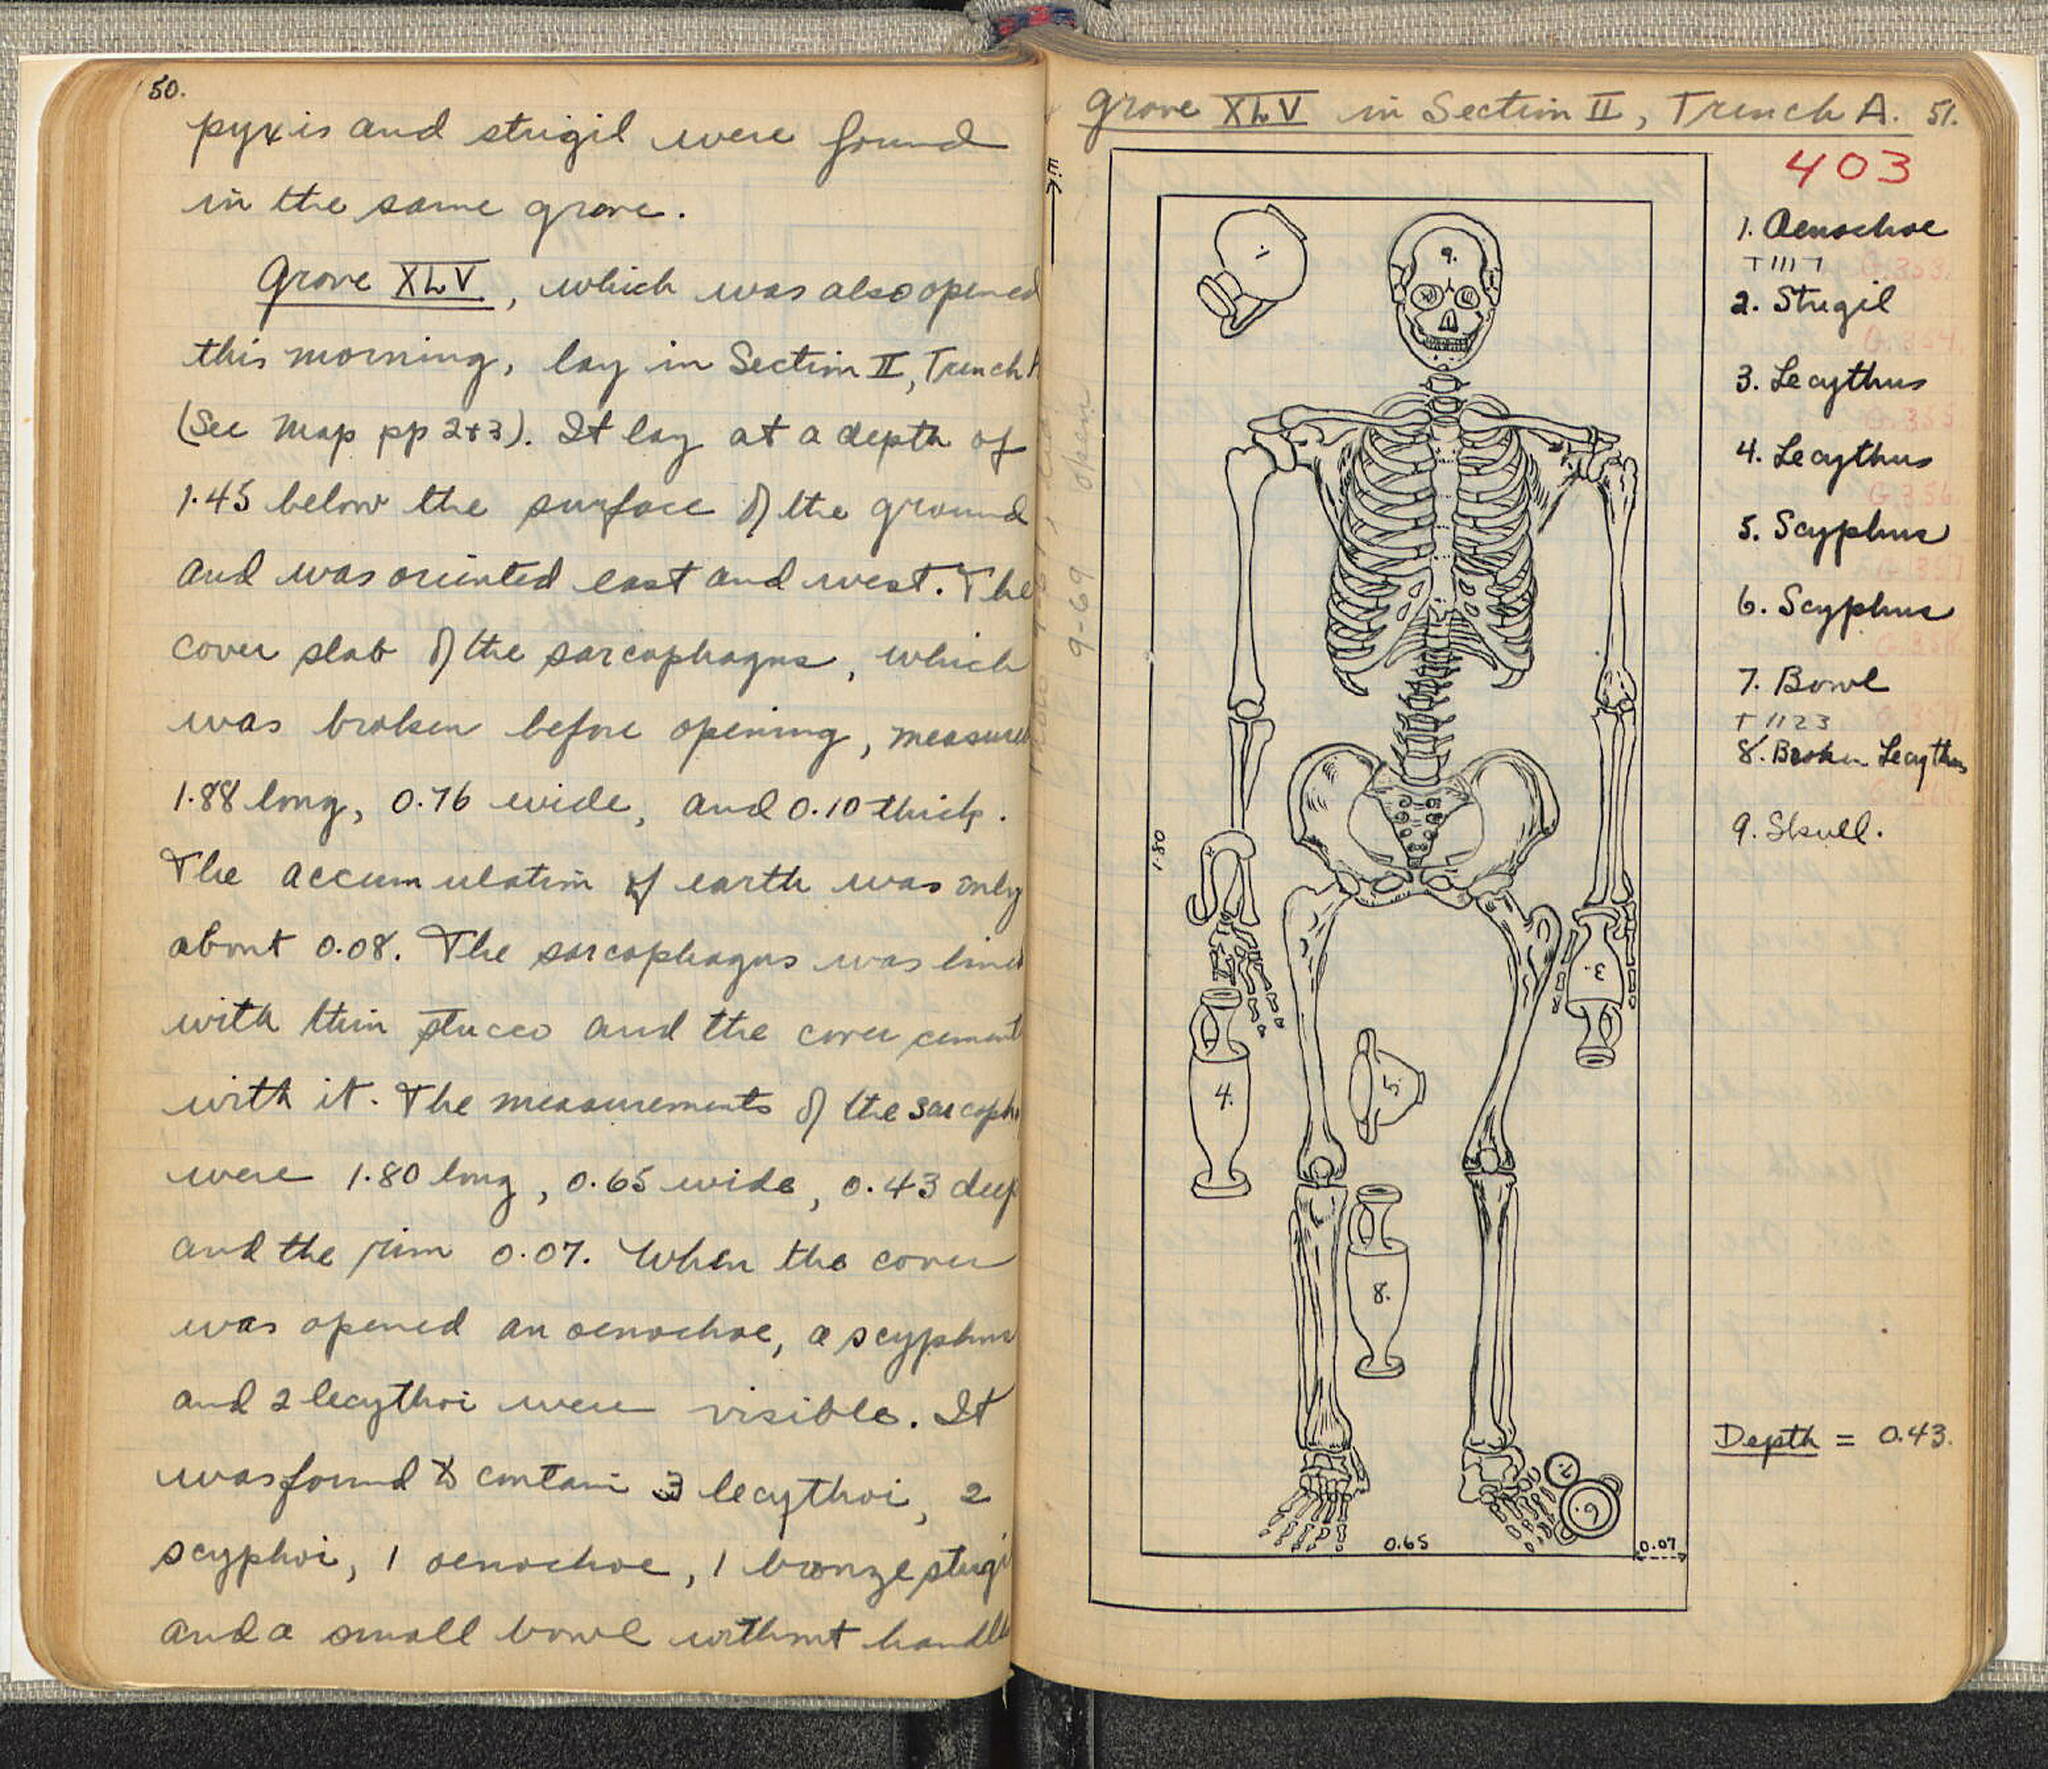 50.
pyxis and strigil were found
in the same grave.
Grave XLV, which was also opened
this morning, lay in Section II, Trench A
(See Map pp 2+3). It lay at a depth of
1.45 below the surface of the ground
and was oriented east and west. The
cover slab of the sarcophagus, which
was broken before opening, measured
1.88 long, 0.76 wide, and 0.10 thick.
The accumulation of earth was only
about 0.08. The sarcophagus was lined
with thin stucco and the cover cement
with it. The measurements of the sarcoph
were 1.80 long, 0.65 wide, 0.43 deep
and the rim 0.07. When the cover
was opened an oenochoe, a scyphus
and 2 lecythoi were visible. It
was found to contain 3 lecythoi, 2
scyphoi, 1 oenochoe, 1 bronze strigi
and a small bowl without handle
Grave XLV in Section II, Trench A. 51.
403
E.
1. Oenochoe
T1117 G.353.
2. Strigil
G.354.
3. Lecythus
G.355
4. Lecythus
G.356
5. Scyphus
G.357
6. Scyphus
G.358.
7. Bowl
T1123
8. Broken Lecythus
9. Skull.
Depth = 0.43.
9-69 open
1.
9.
1.80
3.
4.
5.
8.
7.
6.
0.65
0.07